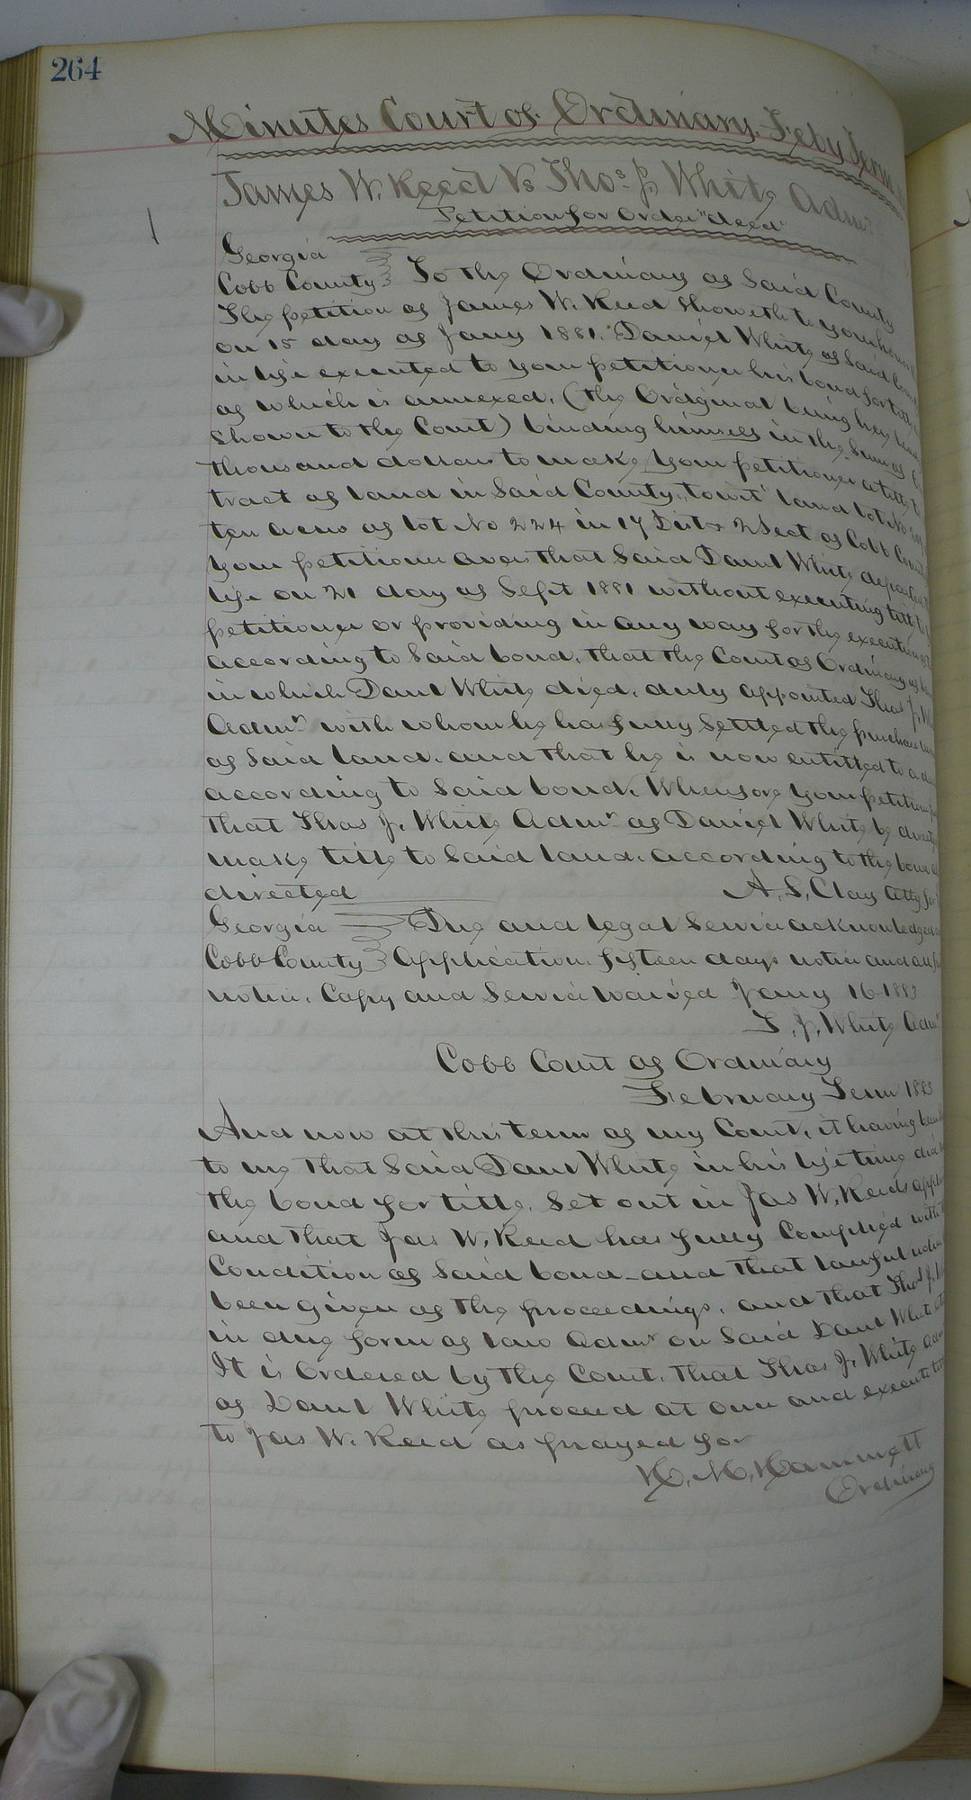 264
Minutes Court of Ordinary. Feby Term
James W. Reed Vs Thos J. White Admr
Petition for order "deed"
Georgia
Cobb County To the Ordinary of Said County
The petition of James W. Reed Showeth to your honor
on 15 day of Jany 1881. Daniel White of Said
in life executed to your petitioner his bond for title
of which is annexed, (the Original being here
Shown to the Court) binding himself in the Sum of
thousand dollars to make your petitioner a title to
tract of land in Said County, towit land lot No
ten acres of lot No 224 in 17 Dist & 2 Sect of Cobb
your petitioner avers that Said Danl White departed
life on 21 day of Sept 1881 without executing title to
petitioner or providing in any way for the
according to Said bond, that the Court of Ordinary of
in which Danl White died, duly appointed Thos J.
Admr. with whom he has fully Settled the purchase
of Said land. and that he is now entitled to a
according to Said bond. Wherefore your
that Thos J. White Admr of Daniel White be
make title to Said land. according to the bond
directed A. S. Clay Atty for
Georgia Due and legal Service acknowledged
Cobb County Application. fifteen days notice and
notice, Copy and Service waived Jany 16 1883
T. J. White Admr
Cobb Court of Ordinary
February Term 1883
And now at this term of my Court, it having been
to me that Said Danl White in his life time did
the bond for title, Set out in Jas W. Reeds
and that Jas W. Reed has fully Complied with
Condition of Said bond and that lawful notice
been given of the proceedings, and that Thos J.
in due form of law Admr on Said Danl White
It is Ordered by the Court, that Thos J. White
of Danl White proceed at once and execute
to Jas W. Reed as prayed for
H. M. Hammett
Ordinary